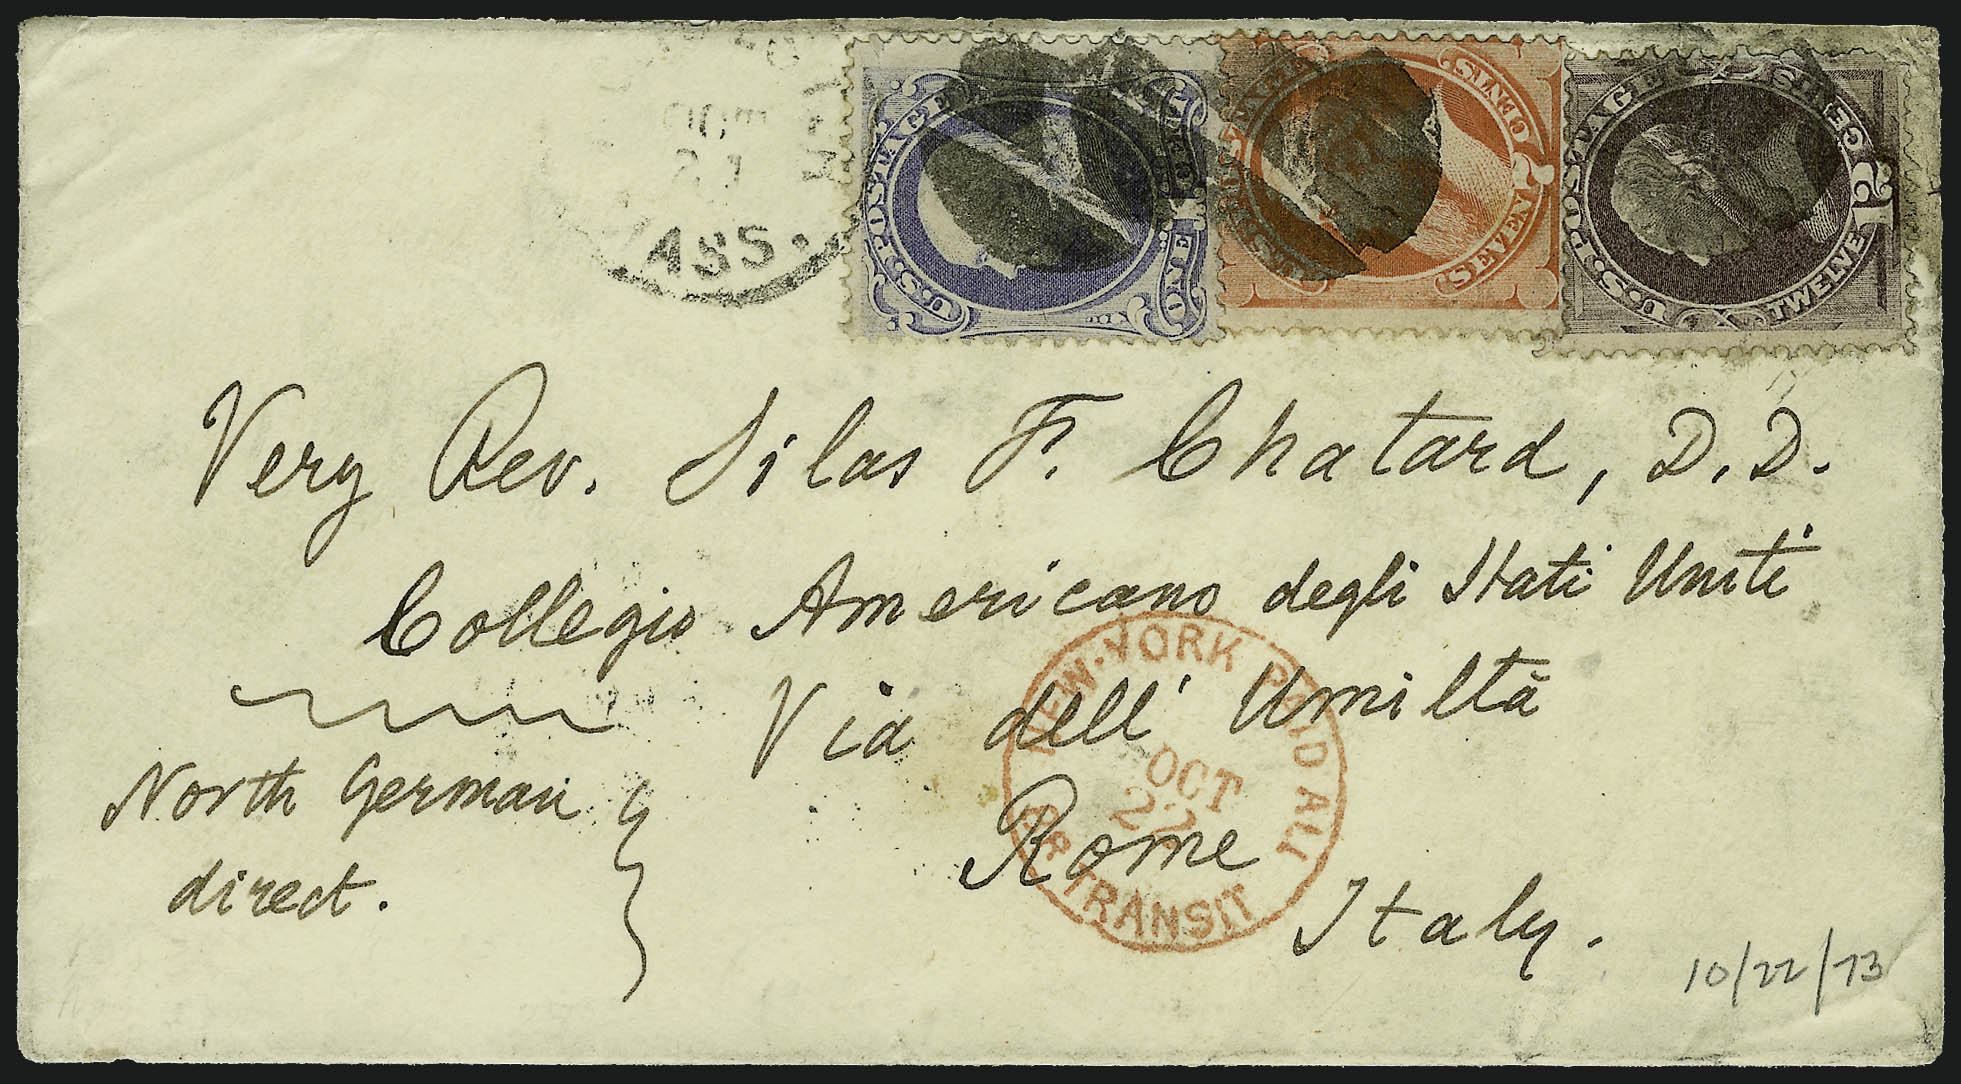 ASS.
U.S. POSTAGE
ONE
CENTS
SEVEN
7
U.S. POSTAGE
CENTS
12
TWELVE
Very Rev. Silas F. Chatard, D.D.
Collegio Americano degli Stati Uniti
Via dell' Umiltà
Rome
Italy.
North German
direct.
NEW-YORK PAID ALL
OCT
22
BR TRANSIT
10/22/73